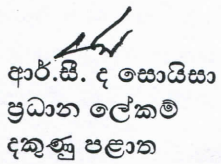 ආර්.සී. ද සොයිසා
ප්‍රධාන ලේකම්
දකුණු පළාත